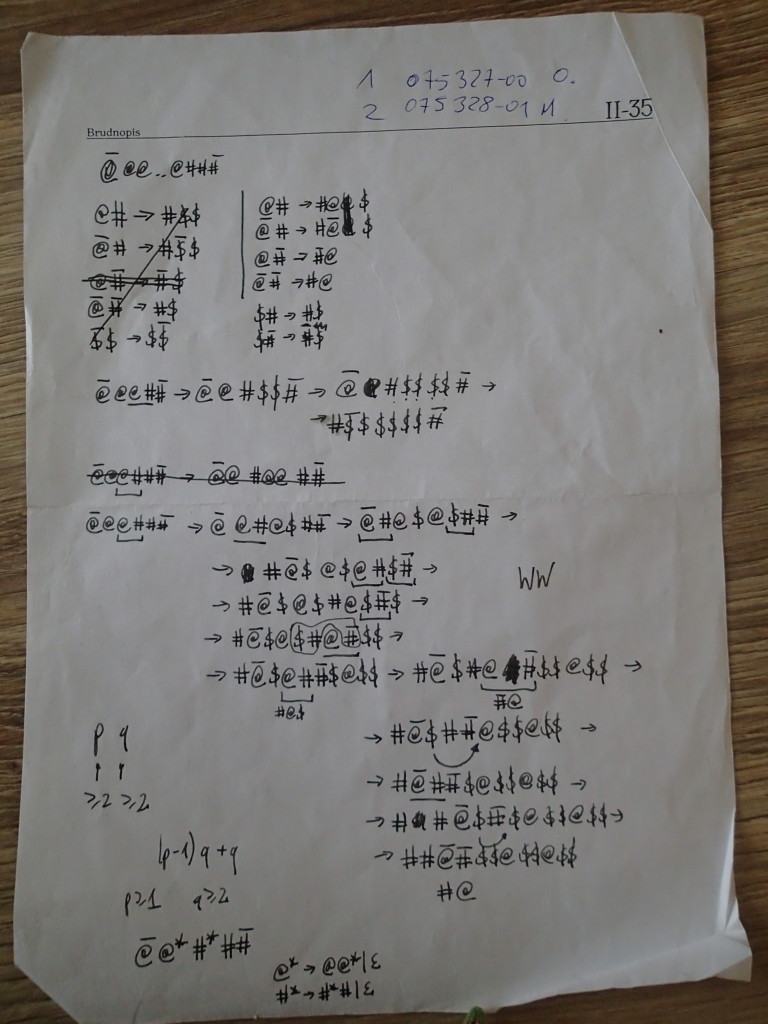 1 075327-00 O.
2 075328-01 M.
II-35
Brudnopis
@̅ @@..@###̅
@# → #$$
@̅# → #$̅$
@#̅ → #̅$
@̅#̅ → #$̅
$̅$ → $$̅
@# → #@$
@̅# → #@̅$
@#̅ → #̅@
@̅#̅ → #@̅
$# → #$
$#̅ → #̅$
@̅@@##̅ → @̅@#$$#̅ → @̅#$$$$#̅ →
→ #$̅$$$$$#̅
@̅@@###̅ → @̅@#@@##̅
@̅@@###̅ → @̅@#@$##̅ → @̅#@$@$##̅ →
→ #@̅$@$@#$#̅ →
→ #@̅$@$#@$#̅$ →
→ #@̅$@$#@#̅$$ →
→ #@̅$@##̅$@$$ → #@̅$#@#̅$$@$$ →
#$@
#̅@
→ #@̅$##̅@$$@$$ →
→ #@̅##̅$@$$@$$ →
→ ##@̅$#̅$@$$@$$ →
→ ##@̅#̅$$@$$@$$
#@
WW
p q
≥2 ≥2
(p-1)q+q
p≥1 q≥2
@̅@*#*##̅
@* → @@*|ε
#* → #*#|ε